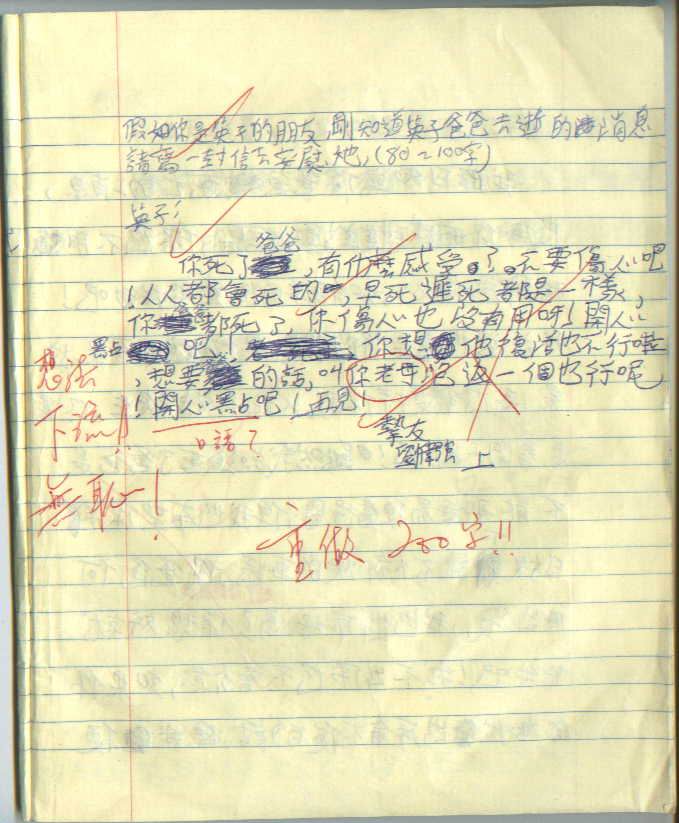 假如你是英子的朋友,剛知道英子爸爸去逝的消息
請寫一封信去安慰她,(80~100字)
英子:
你死了爸爸,有什麼感受。了。不要傷心吧
!人人都會死的,早死遲死都是一樣,
你爸爸都死了,你傷心也沒有用呀!開心
點吧,你想他復活也不行啦
,想要的話,叫你老母免返一個也行呢
!開心點吧!再見!
摯友
上
想法
下流!!
無恥!
口語?
重做 200字!!